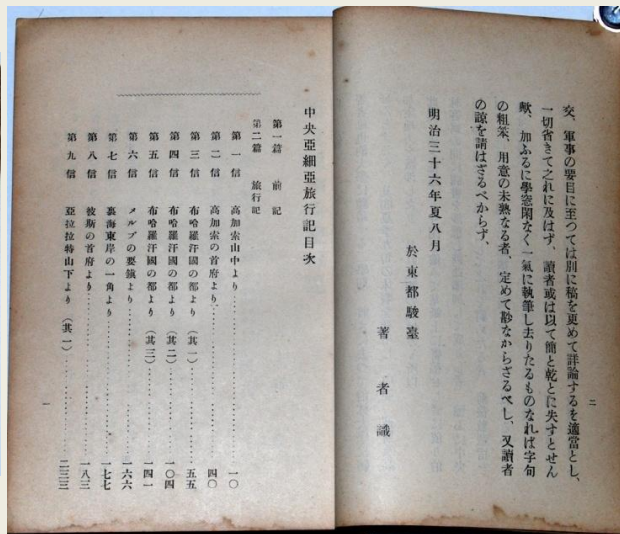 交、軍事の要目に至つては別に稿を更めて詳論するを適當とし、
一切省きて之れに及はず、讀者或は以て簡と乾とに失すとせん
歟、加ふるに學窓閑なく一氣に執筆し去りたるものなれば字句
の粗笨、用意の未熟なる者、定めて尠なからざるべし、又讀者
の諒を請はざるべからず、
明治三十六年夏八月
於東都駿臺
著者識
二
中央亞細亞旅行記目次
第一篇 前記
第二篇 旅行記
第一信 高加索山中より…………一〇
第二信 高加索の首府より…………四〇
第三信 布哈羅汗國の都より(其一)…………五五
第四信 布哈羅汗國の都より(其二)…………一〇四
第五信 布哈羅汗國の都より(其三)…………一四一
第六信 メルブの要鎭より…………一六六
第七信 裏海東岸の一角より…………一七七
第八信 彼斯の首府より…………一八三
第九信 亞拉拉特山下より(其一)…………二三三
一